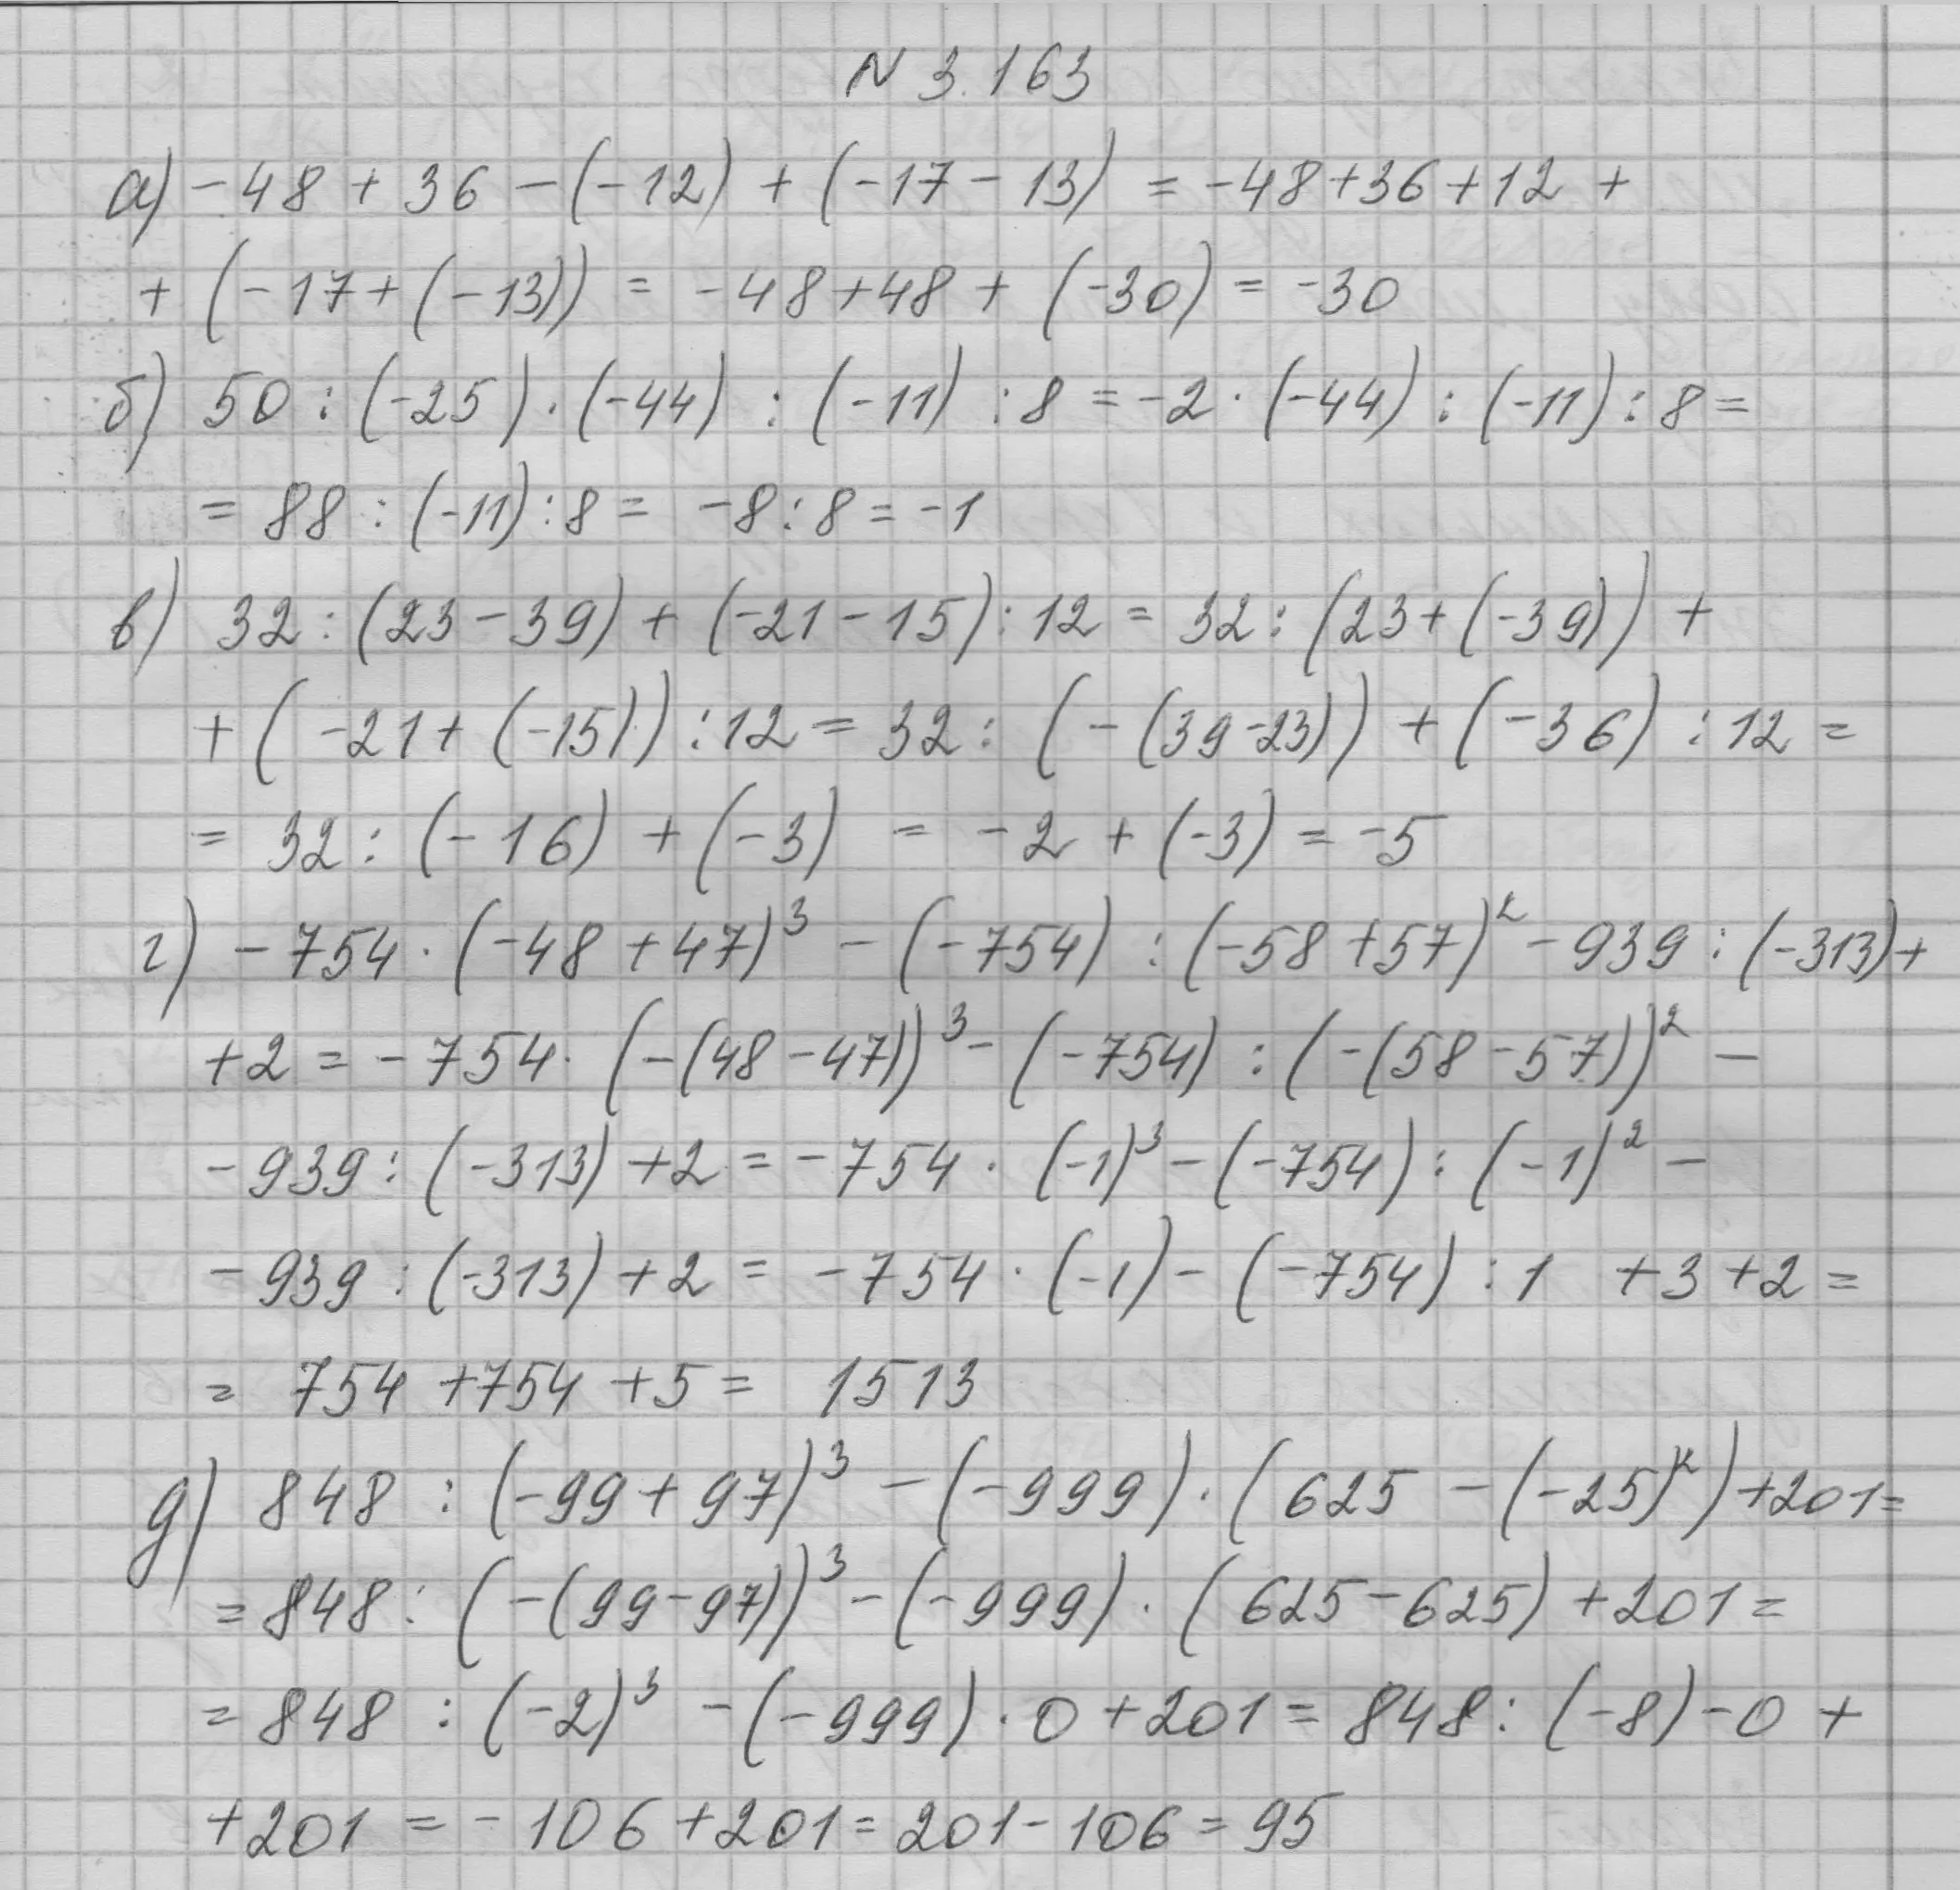 N 3.163
а) -48 + 36 - (-12) + (-17 - 13) = -48+36+12 +
+ (-17+(-13)) = -48+48 + (-30) = -30
б) 50 : (-25) · (-44) : (-11) : 8 = -2 · (-44) : (-11) : 8 =
= 88 : (-11) : 8 = -8 : 8 = -1
в) 32 : (23 - 39) + (-21 - 15) : 12 = 32 : (23 + (-39)) +
+ (-21 + (-15)) : 12 = 32 : (-(39-23)) + (-36) : 12 =
= 32 : (-16) + (-3) = -2 + (-3) = -5
г) -754 · (-48 + 47)³ - (-754) : (-58 + 57)² - 939 : (-313) +
+2 = -754 · (-(48-47))³ - (-754) : (-(58-57))² -
- 939 : (-313) + 2 = -754 · (-1)³ - (-754) : (-1)² -
- 939 : (-313) + 2 = -754 · (-1) - (-754) : 1 + 3 + 2 =
= 754 + 754 + 5 = 1513
д) 848 : (-99 + 97)³ - (-999) · (625 - (-25)²) + 201 =
= 848 : (-(99-97))³ - (-999) · (625 - 625) + 201 =
= 848 : (-2)³ - (-999) · 0 + 201 = 848 : (-8) - 0 +
+ 201 = -106 + 201 = 201 - 106 = 95